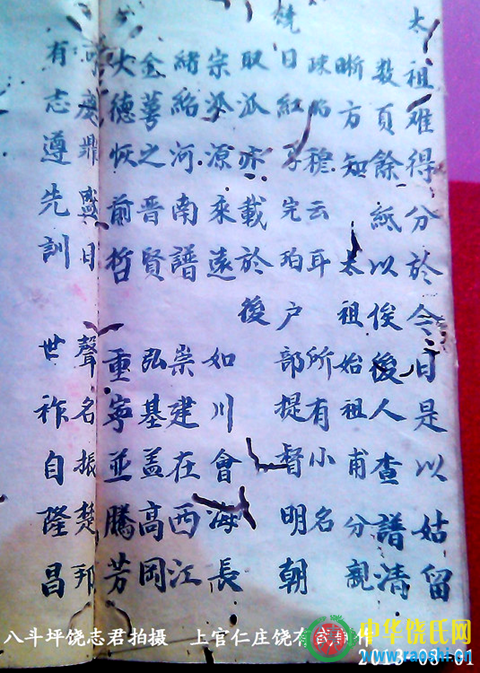 太祖难得分於今日是以姑留
数頁餘紙以俊後人查譜清
晰方知太祖始祖甫分親
疎昭穆云耳 所有小名
饶日紅子完珀户部提督明朝
取派亦載於後
宗派源乘遠 如川會海長
緒紹河南譜 崇建在西江
金萼之晋賢 弘基盖高岡
大德恢前哲 重寧並騰芳
慶鼎盛日 聲名振楚邦
有志遵先訓 世祚自隆昌
八斗坪饶志君拍摄 上官仁庄饶有武制作
中华饶氏网
www.raoshi.cn
2013-08-01